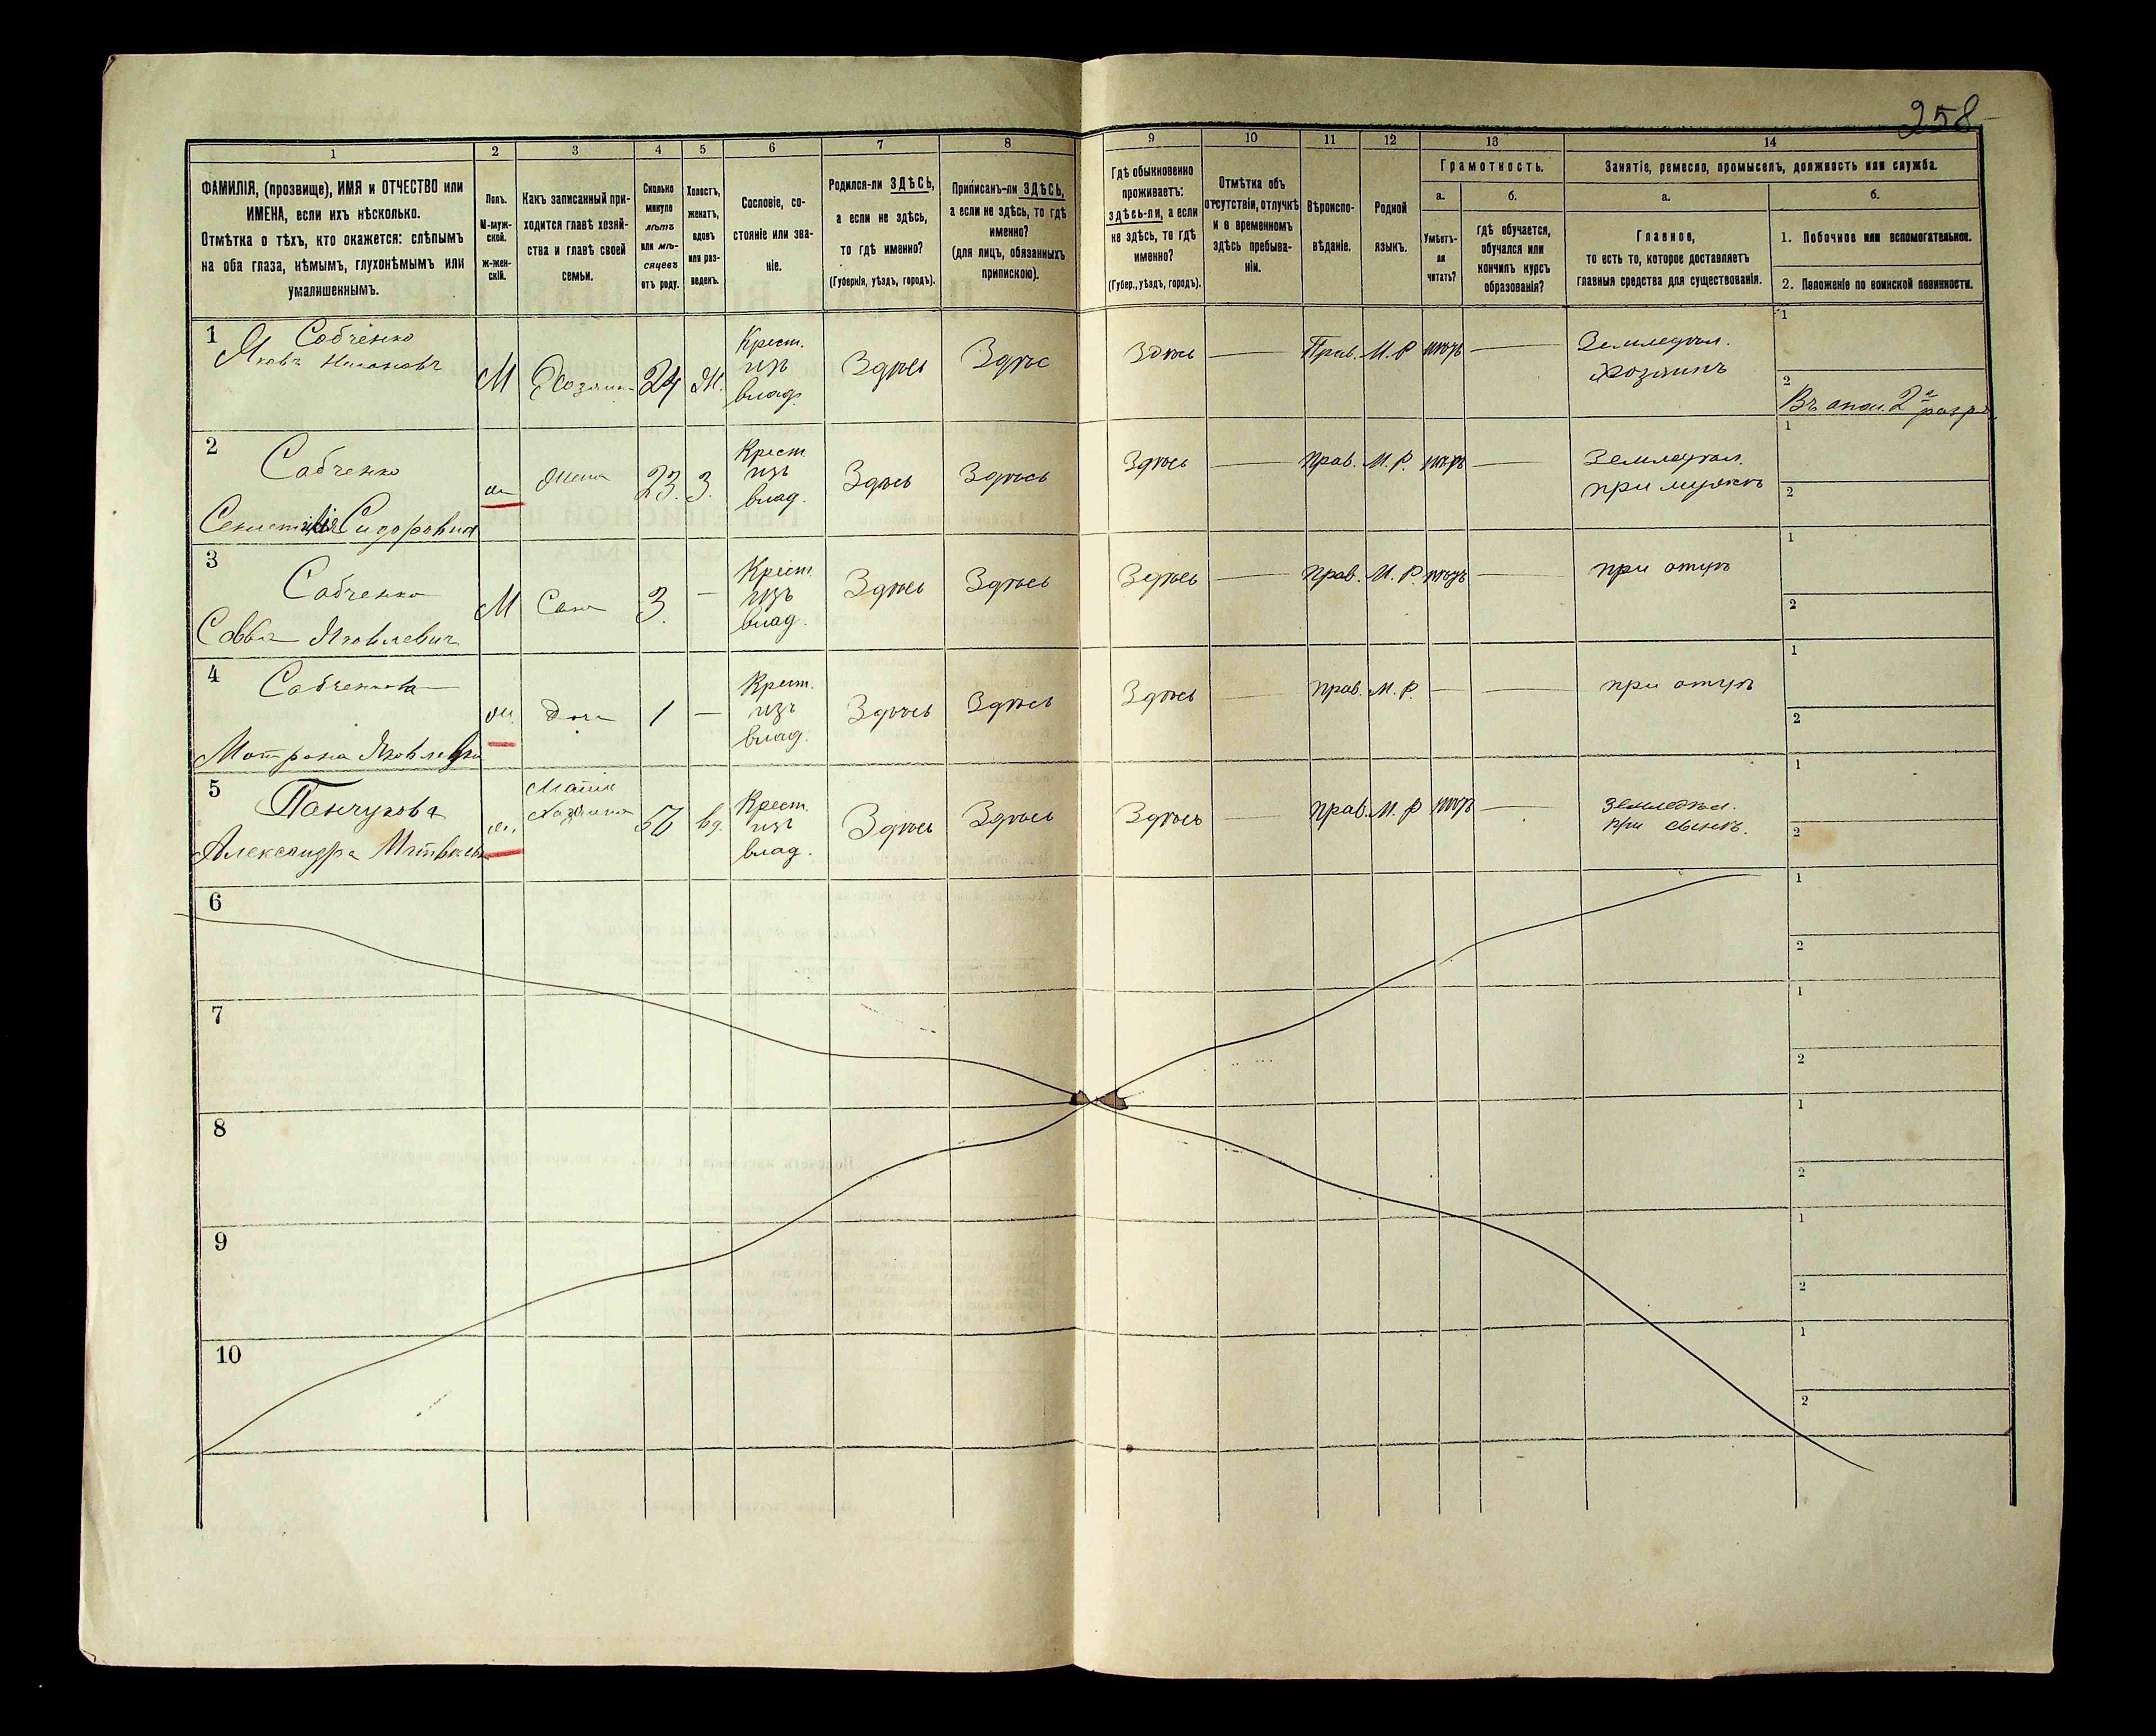 258
1
2
3
4
5
6
7
8
ФАМИЛІЯ, (прозвище), ИМЯ и ОТЧЕСТВО или
ИМЕНА, если ихъ нѣсколько.
Отмѣтка о тѣхъ, кто окажется: слѣпымъ
на оба глаза, нѣмымъ, глухонѣмымъ или
умалишеннымъ.
Полъ.
М-муж-
ской.
Ж-жен-
скій.
Какъ записанный при-
ходится главѣ хозяй-
ства и главѣ своей
семьи.
Сколько
минуло
лѣтъ
или мѣ-
сяцевъ
отъ роду.
Холостъ,
женатъ,
вдовъ
или раз-
веденъ.
Сословіе, со-
стояніе или зва-
ніе.
Родился-ли ЗДѢСЬ,
а если не здѣсь,
то гдѣ именно?
(Губернія, уѣздъ, городъ).
Приписанъ-ли ЗДѢСЬ,
а если не здѣсь, то гдѣ
именно?
(для лицъ, обязанныхъ
припискою).
9
10
11
12
13
14
Гдѣ обыкновенно
проживаетъ:
здѣсь-ли, а если
не здѣсь, то гдѣ
именно?
(Губер., уѣздъ, городъ).
Отмѣтка объ
отсутствіи, отлучкѣ
и о временномъ
здѣсь пребыва-
ніи.
Вѣроиспо-
вѣданіе.
Родной
языкъ.
Грамотность.
а.
б.
Умѣетъ-
ли
читать?
гдѣ обучается,
обучался или
кончилъ курсъ
образованія?
Занятіе, ремесло, промыселъ, должность или служба.
а.
б.
Главное,
то есть то, которое доставляетъ
главныя средства для существованія.
1. Побочное или вспомогательное.
2. Положеніе по воинской повинности.
1
Собченко
Яковъ
М
Хозяинъ
24
Ж.
Крест.
изъ
влад.
Здѣсь
Здѣсь
Здѣсь
Прав.
М. Р
нѣтъ
Земледѣл.
Хозяинъ
1
2
Въ опол. 2 разр.
2
Собченко
Сидоровна
ж
Жена
23.
З.
Крест
изъ
влад.
Здѣсь
Здѣсь
Здѣсь
прав.
М. Р.
нѣтъ
Земледѣл.
при мужѣ
1
2
3
Собченко
Савва Яковлевич
М
Сынъ
3.
Крест
изъ
влад.
Здѣсь
Здѣсь
Здѣсь
прав.
М. Р.
нѣтъ
при отцѣ
1
2
4
Мотрона Яковлевна
ж.
Доч
1
Крест.
изъ
влад.
Здѣсь
Здѣсь
Здѣсь
прав.
М. Р.
при отцѣ
1
2
5
Панчукова
Александра Матвѣевн
ж.
Мать
Хозяина
50
вд.
Крест.
изъ
влад.
Здѣсь
Здѣсь
Здѣсь
прав.
М. Р
нѣтъ
Земледѣл.
при сынѣ.
1
2
6
1
2
7
1
2
8
1
2
9
1
2
10
1
2